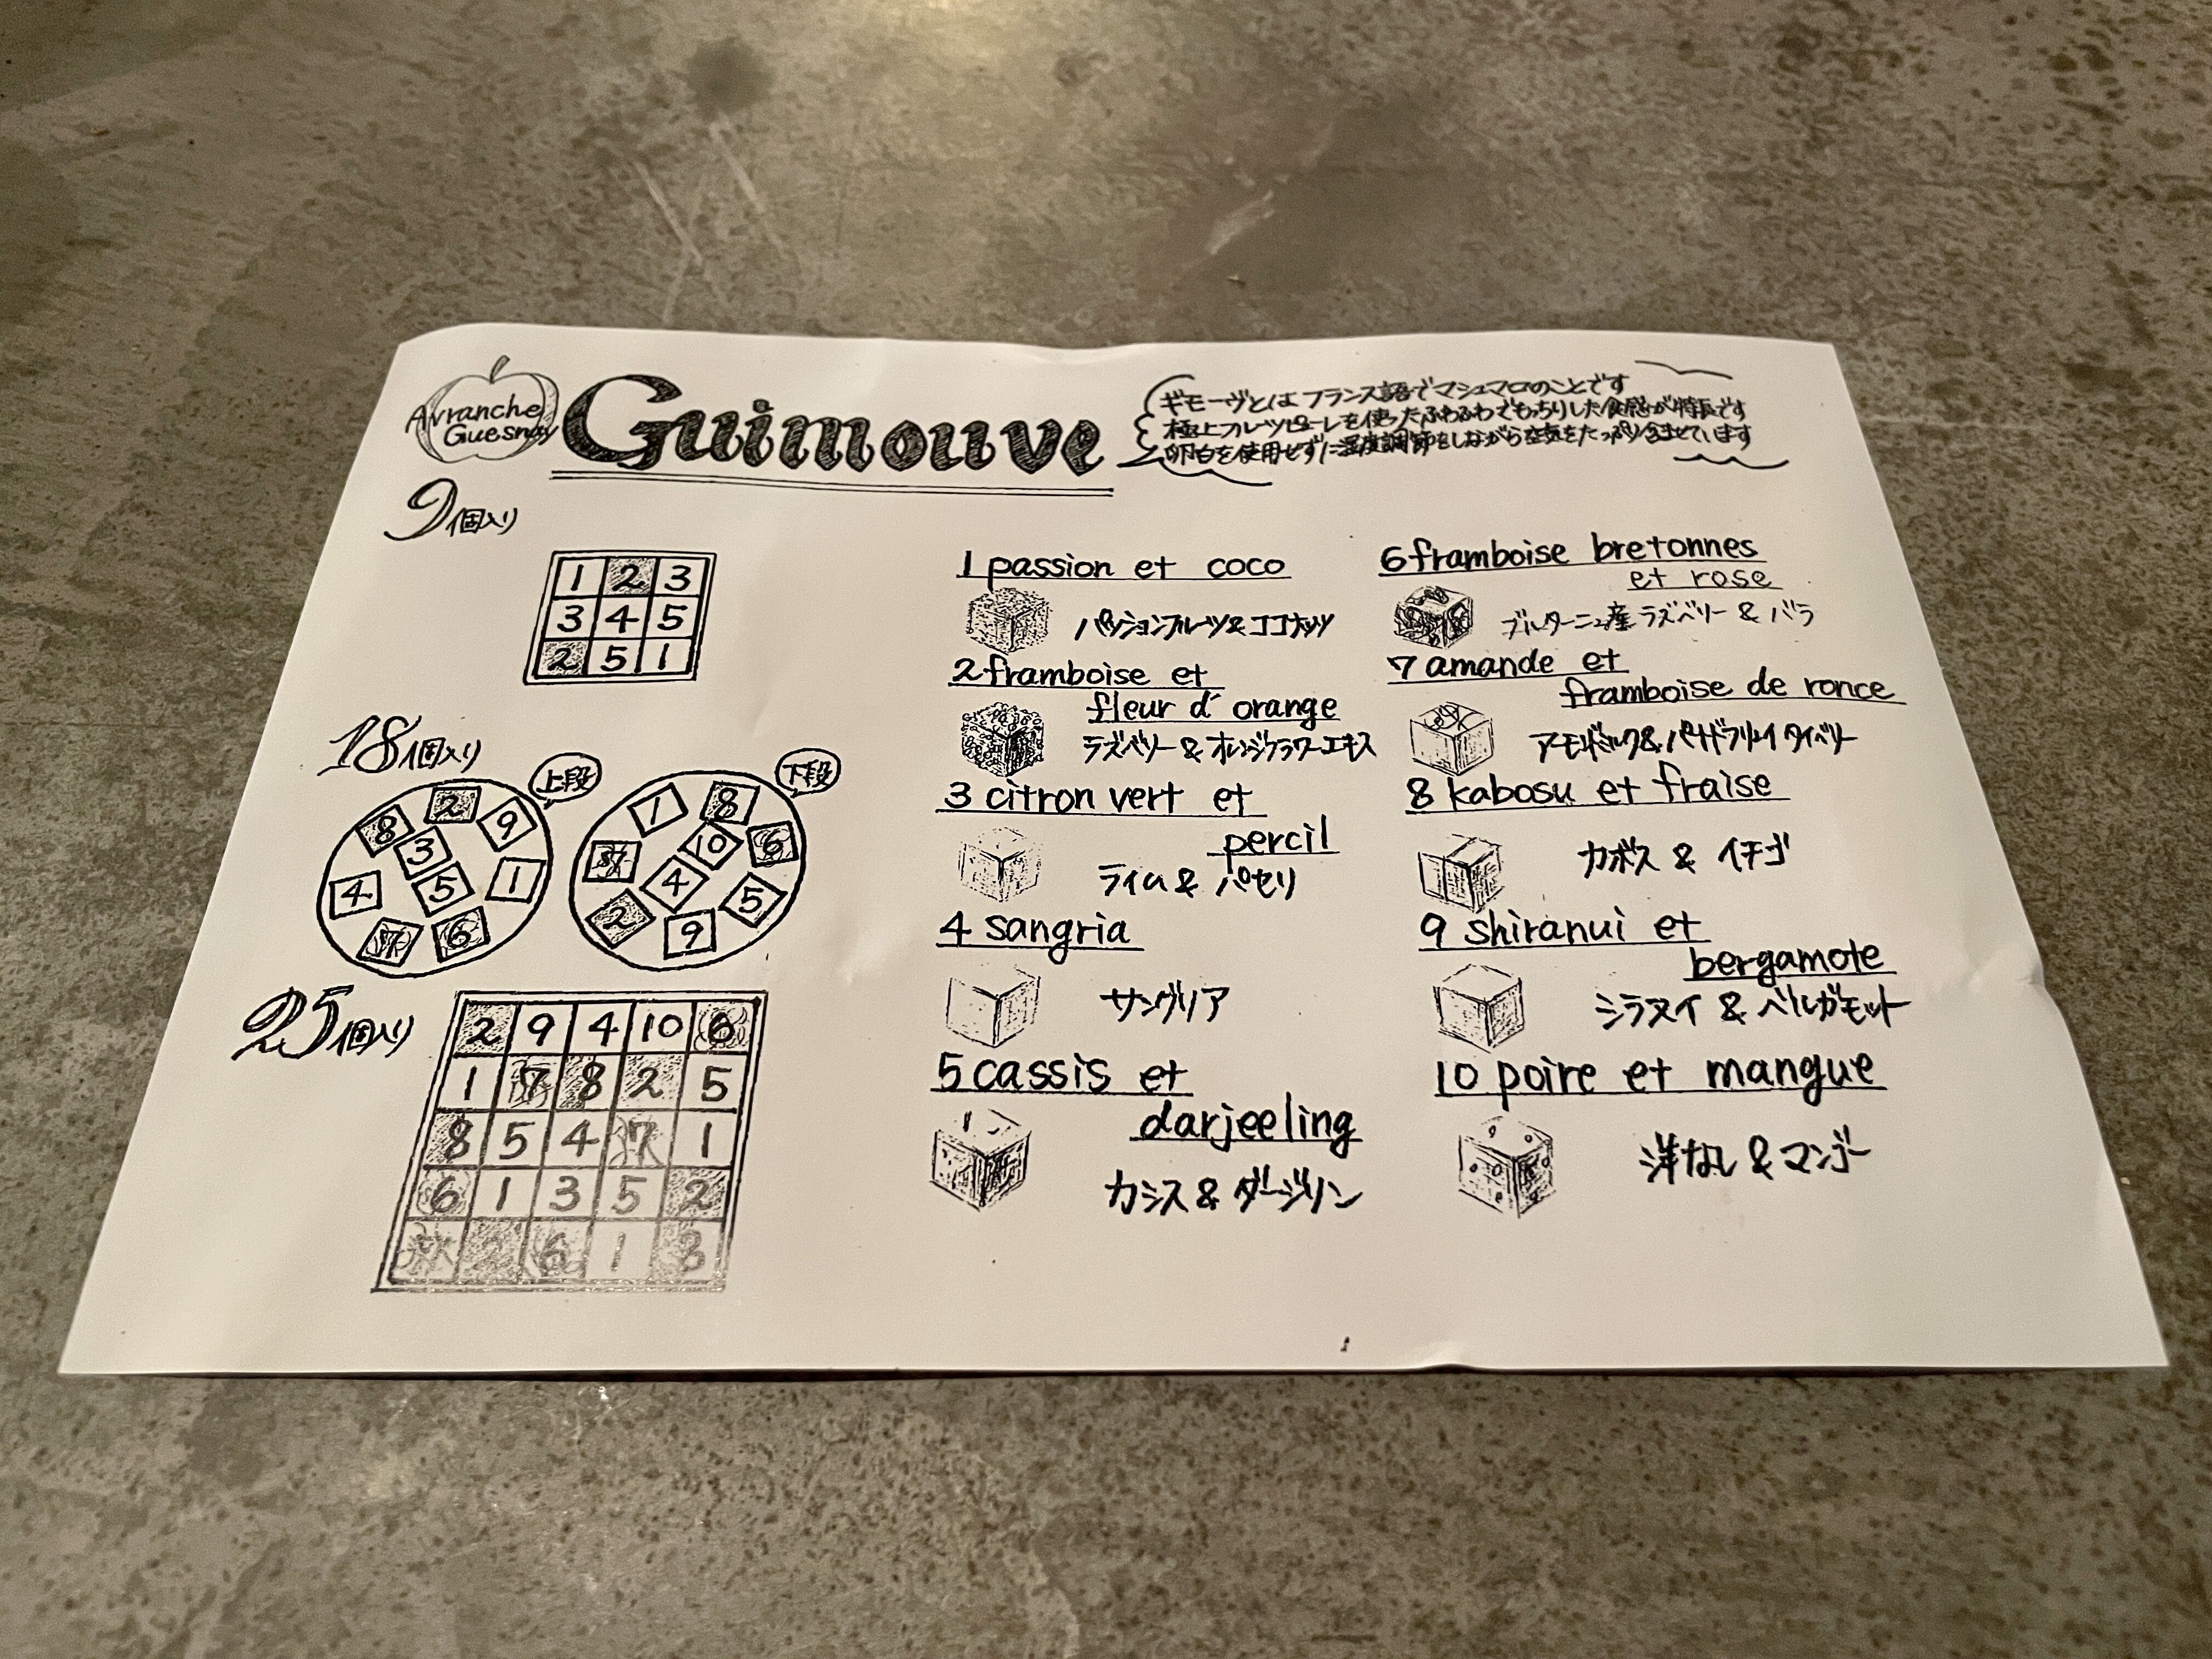 Avranche
Guesnay
Guimouve
ギモーヴとはフランス語でマシュマロのことです
極上フルーツピューレを使ったふわふわでもっちりした食感が特長です
卵白を使用せずに温度調節をしながら空気をたっぷり含ませています
9個入り
1 2 3
3 4 5
2 5 1
18個入り
上段
8 2 9
3
4 5 1
7 6
下段
1 8
10 6
7 4
2 9 5
25個入り
2 9 4 10 6
1 7 8 2 5
8 5 4 7 1
6 1 3 5 2
7 2 6 1 8
1 passion et coco
パッションフルーツ&ココナッツ
2 framboise et
fleur d'orange
ラズベリー&オレンジフラワーエキス
3 citron vert et
percil
ライム&パセリ
4 sangria
サングリア
5 cassis et
darjeeling
カシス&ダージリン
6 framboise bretonnes
et rose
ブルターニュ産ラズベリー&バラ
7 amande et
framboise de ronce
アーモンドミルク&
8 kabosu et fraise
カボス&イチゴ
9 shiranui et
bergamote
シラヌイ&ベルガモット
10 poire et mangue
洋なし&マンゴー